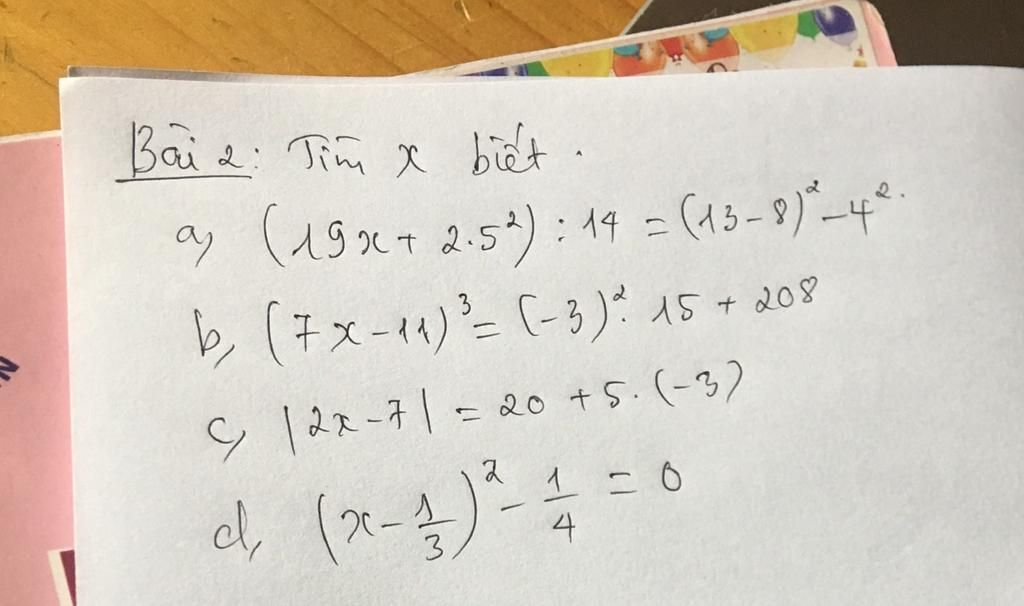 Bài 2: Tìm x biết.
a, (19x + 2.5²) : 14 = (13 - 8)² - 4².
b, (7x - 11)³ = (-3)². 15 + 208
c, |2x - 7| = 20 + 5. (-3)
d, (x - 1/3)² - 1/4 = 0